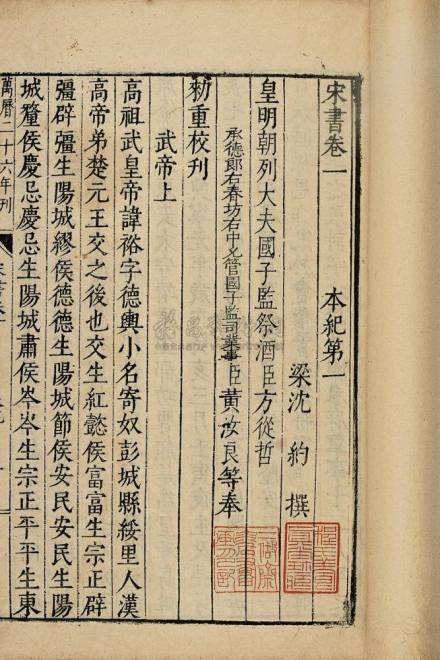 宋書卷一　本紀第一
梁沈　約　撰
皇明朝列大夫國子監祭酒臣方從哲
承德郎右春坊右中允管國子監司業事臣黃汝良等奉
勑重校刊
武帝上
高祖武皇帝諱裕字德輿小名寄奴彭城縣綏里人漢
高帝弟楚元王交之後也交生紅懿侯富富生宗正辟
彊辟彊生陽城繆侯德德生陽城節侯安民安民生陽
城釐侯慶忌慶忌生陽城肅侯岑岑生宗正平平生東
萬曆二十六年刊